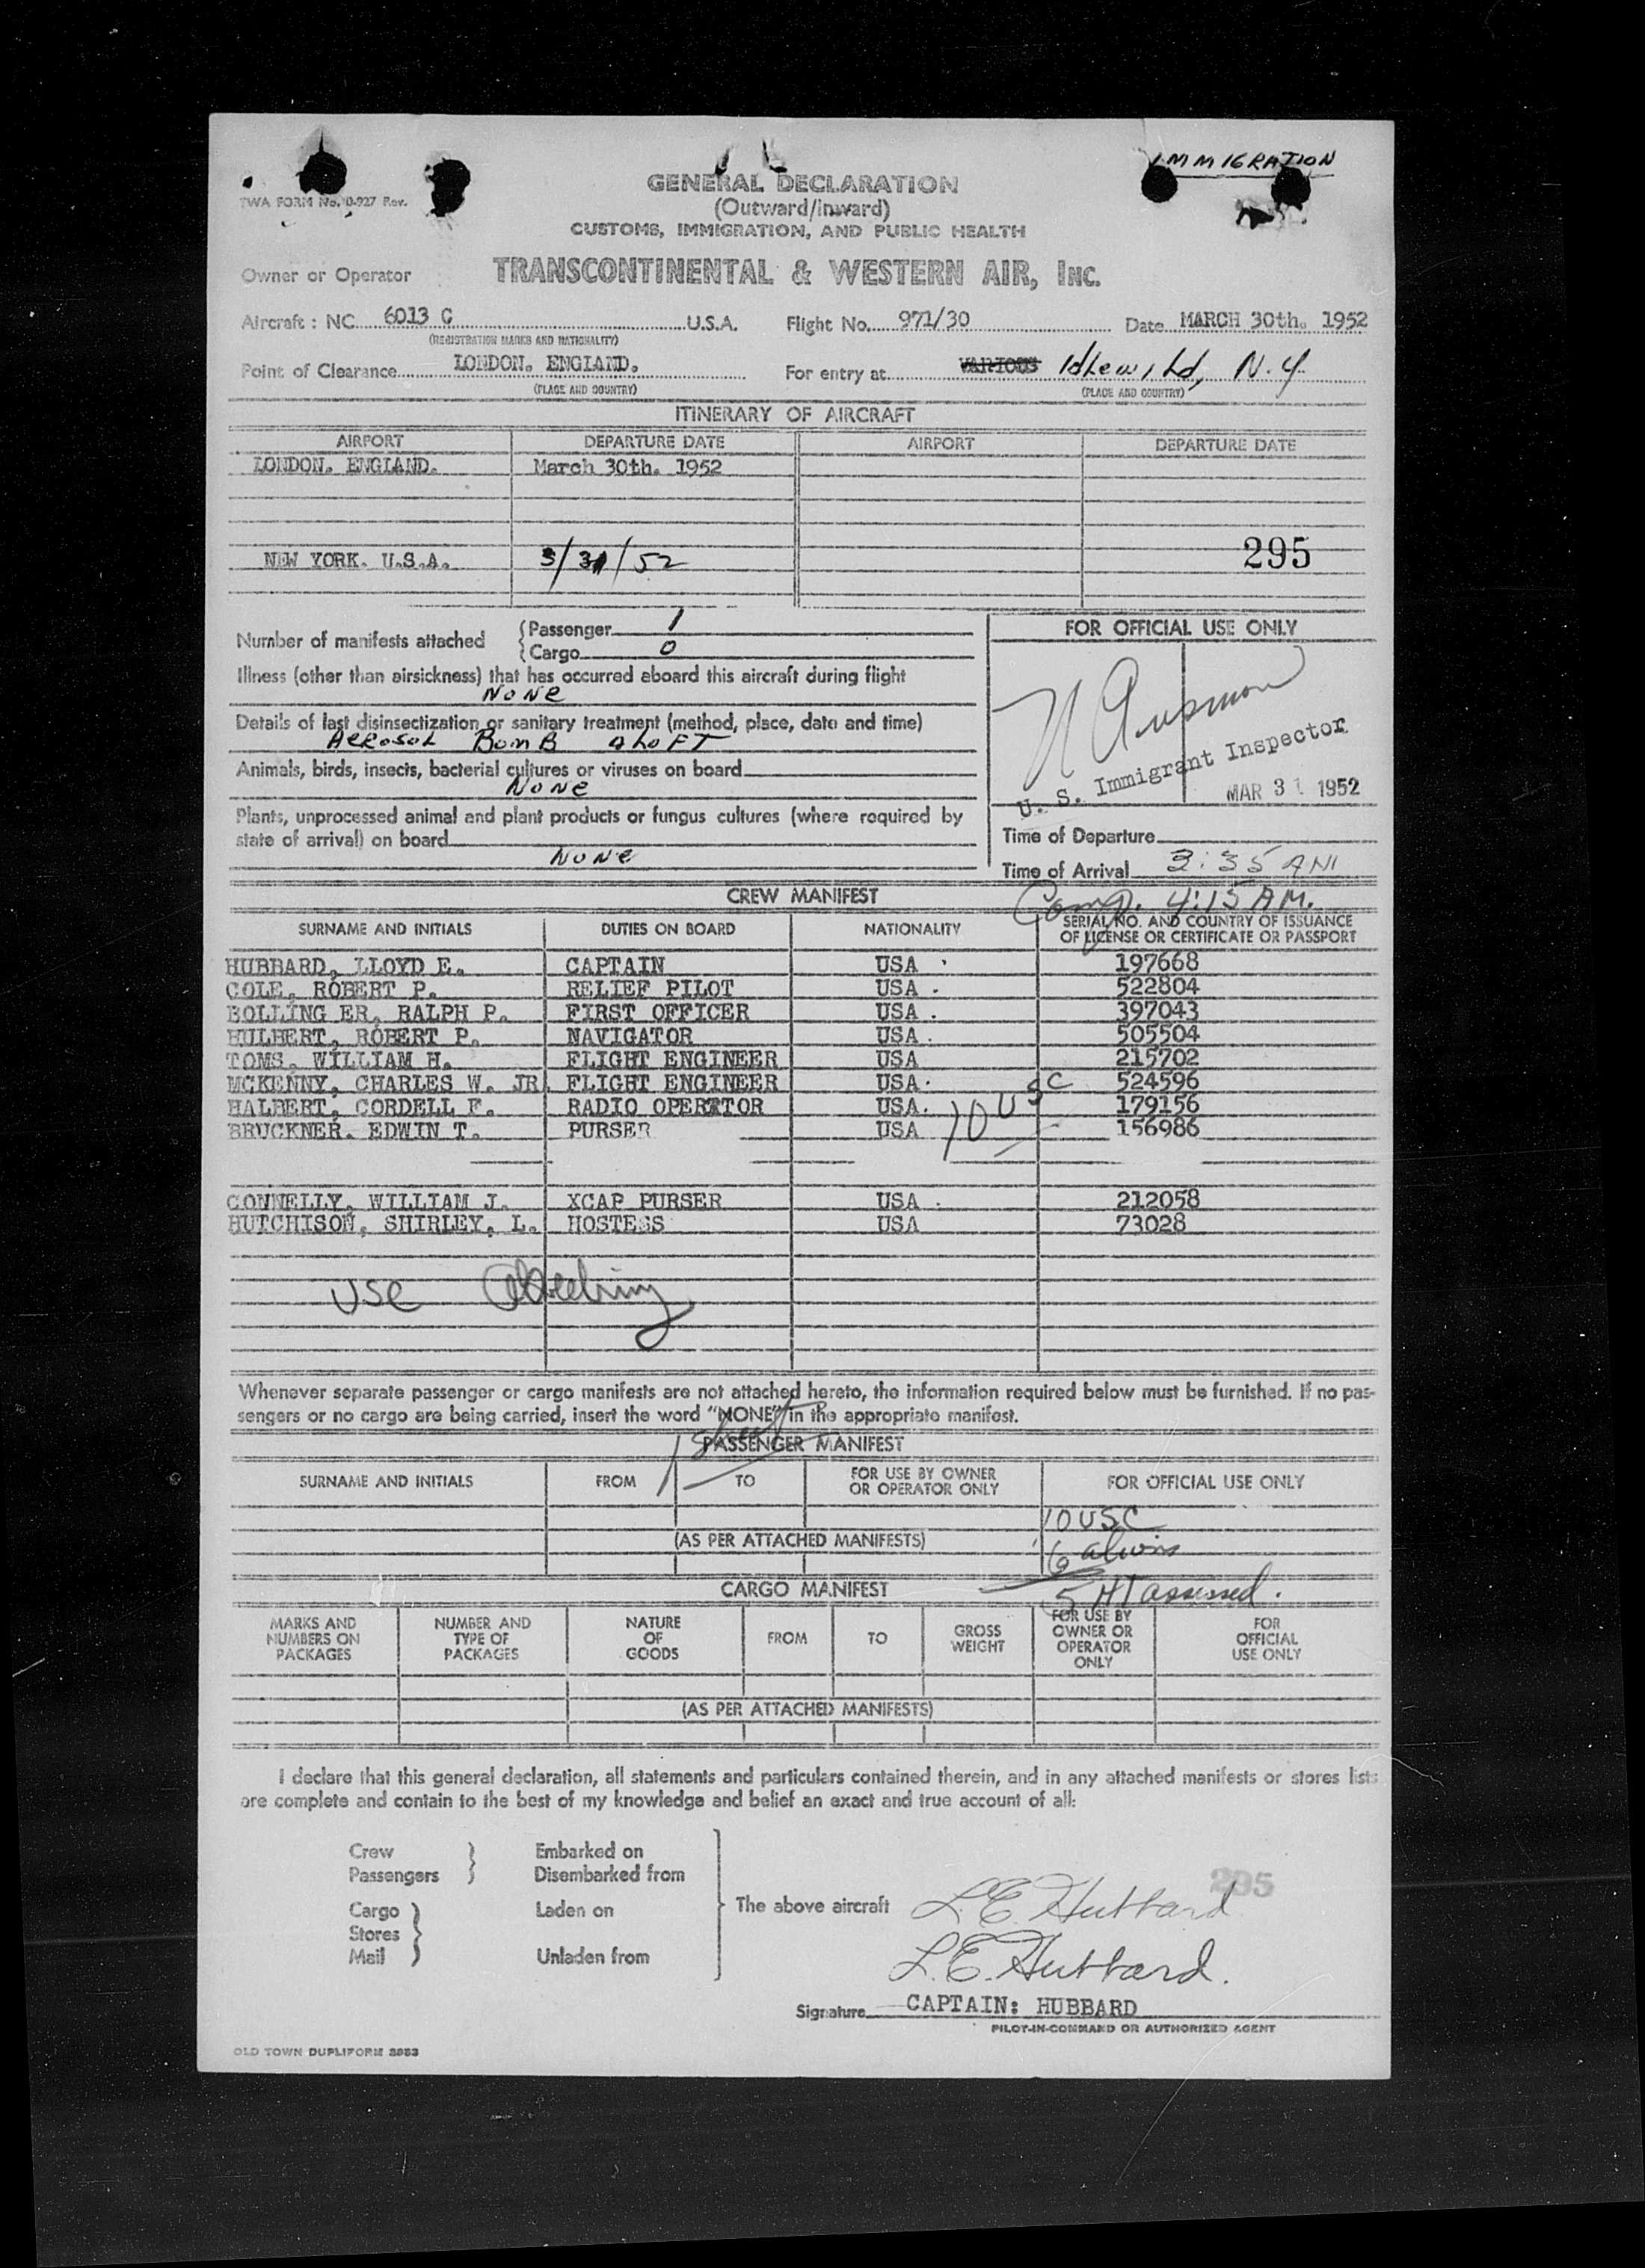 IMMIGRATION
TWA FORM No. 0-927 Rev.
GENERAL DECLARATION
(Outward/inward)
CUSTOMS, IMMIGRATION, AND PUBLIC HEALTH
Owner or Operator TRANSCONTINENTAL & WESTERN AIR, INC.
Aircraft : NC 6013 C U.S.A. Flight No. 971/30 Date MARCH 30th. 1952
(REGISTRATION MARKS AND NATIONALITY)
Point of Clearance LONDON. ENGLAND. For entry at VARIOUS Idlewild, N.Y
(PLACE AND COUNTRY) (PLACE AND COUNTRY)
ITINERARY OF AIRCRAFT
AIRPORT DEPARTURE DATE AIRPORT DEPARTURE DATE
LONDON. ENGLAND. March 30th. 1952
295
NEW YORK. U.S.A. 3/31/52
Number of manifests attached { Passenger 1
{ Cargo 0
FOR OFFICIAL USE ONLY
Illness (other than airsickness) that has occurred aboard this aircraft during flight
NONE
Details of last disinsectization or sanitary treatment (method, place, date and time)
AEROSOL BOMB ALOFT
Animals, birds, insects, bacterial cultures or viruses on board
NONE
Plants, unprocessed animal and plant products or fungus cultures (where required by
state of arrival) on board
NONE
U. S. Immigrant Inspector
MAR 31 1952
Time of Departure
Time of Arrival 3:35 AM
Comp. 4:15 A.M.
CREW MANIFEST
SURNAME AND INITIALS DUTIES ON BOARD NATIONALITY SERIAL NO. AND COUNTRY OF ISSUANCE
OF LICENSE OR CERTIFICATE OR PASSPORT
HUBBARD, LLOYD E. CAPTAIN USA 197668
COLE, ROBERT P. RELIEF PILOT USA 522804
BOLLING ER, RALPH P. FIRST OFFICER USA 397043
HULBERT, ROBERT P. NAVIGATOR USA 505504
TOMS, WILLIAM H. FLIGHT ENGINEER USA 215702
MCKENNY, CHARLES W. JR. FLIGHT ENGINEER USA 524596
HALBERT, CORDELL F. RADIO OPERTTOR USA 179156
BRUCKNER. EDWIN T. PURSER USA 156986
10 USC
CONNELLY, WILLIAM J. XCAP PURSER USA 212058
HUTCHISON, SHIRLEY, L. HOSTESS USA 73028
USC
Whenever separate passenger or cargo manifests are not attached hereto, the information required below must be furnished. If no pas-
sengers or no cargo are being carried, insert the word "NONE" in the appropriate manifest.
1 sheet
PASSENGER MANIFEST
SURNAME AND INITIALS FROM TO FOR USE BY OWNER
OR OPERATOR ONLY FOR OFFICIAL USE ONLY
10 USC
(AS PER ATTACHED MANIFESTS)
6 aliens
5 HT assessed.
CARGO MANIFEST
MARKS AND
NUMBERS ON
PACKAGES NUMBER AND
TYPE OF
PACKAGES NATURE
OF
GOODS FROM TO GROSS
WEIGHT FOR USE BY
OWNER OR
OPERATOR
ONLY FOR
OFFICIAL
USE ONLY
(AS PER ATTACHED MANIFESTS)
I declare that this general declaration, all statements and particulars contained therein, and in any attached manifests or stores lists
are complete and contain to the best of my knowledge and belief an exact and true account of all:
Crew } Embarked on
Passengers } Disembarked from
Cargo } Laden on
Stores }
Mail } Unladen from
The above aircraft
295
L.E. Hubbard
L.E. Hubbard.
Signature CAPTAIN: HUBBARD
PILOT-IN-COMMAND OR AUTHORIZED AGENT
OLD TOWN DUPLIFORM